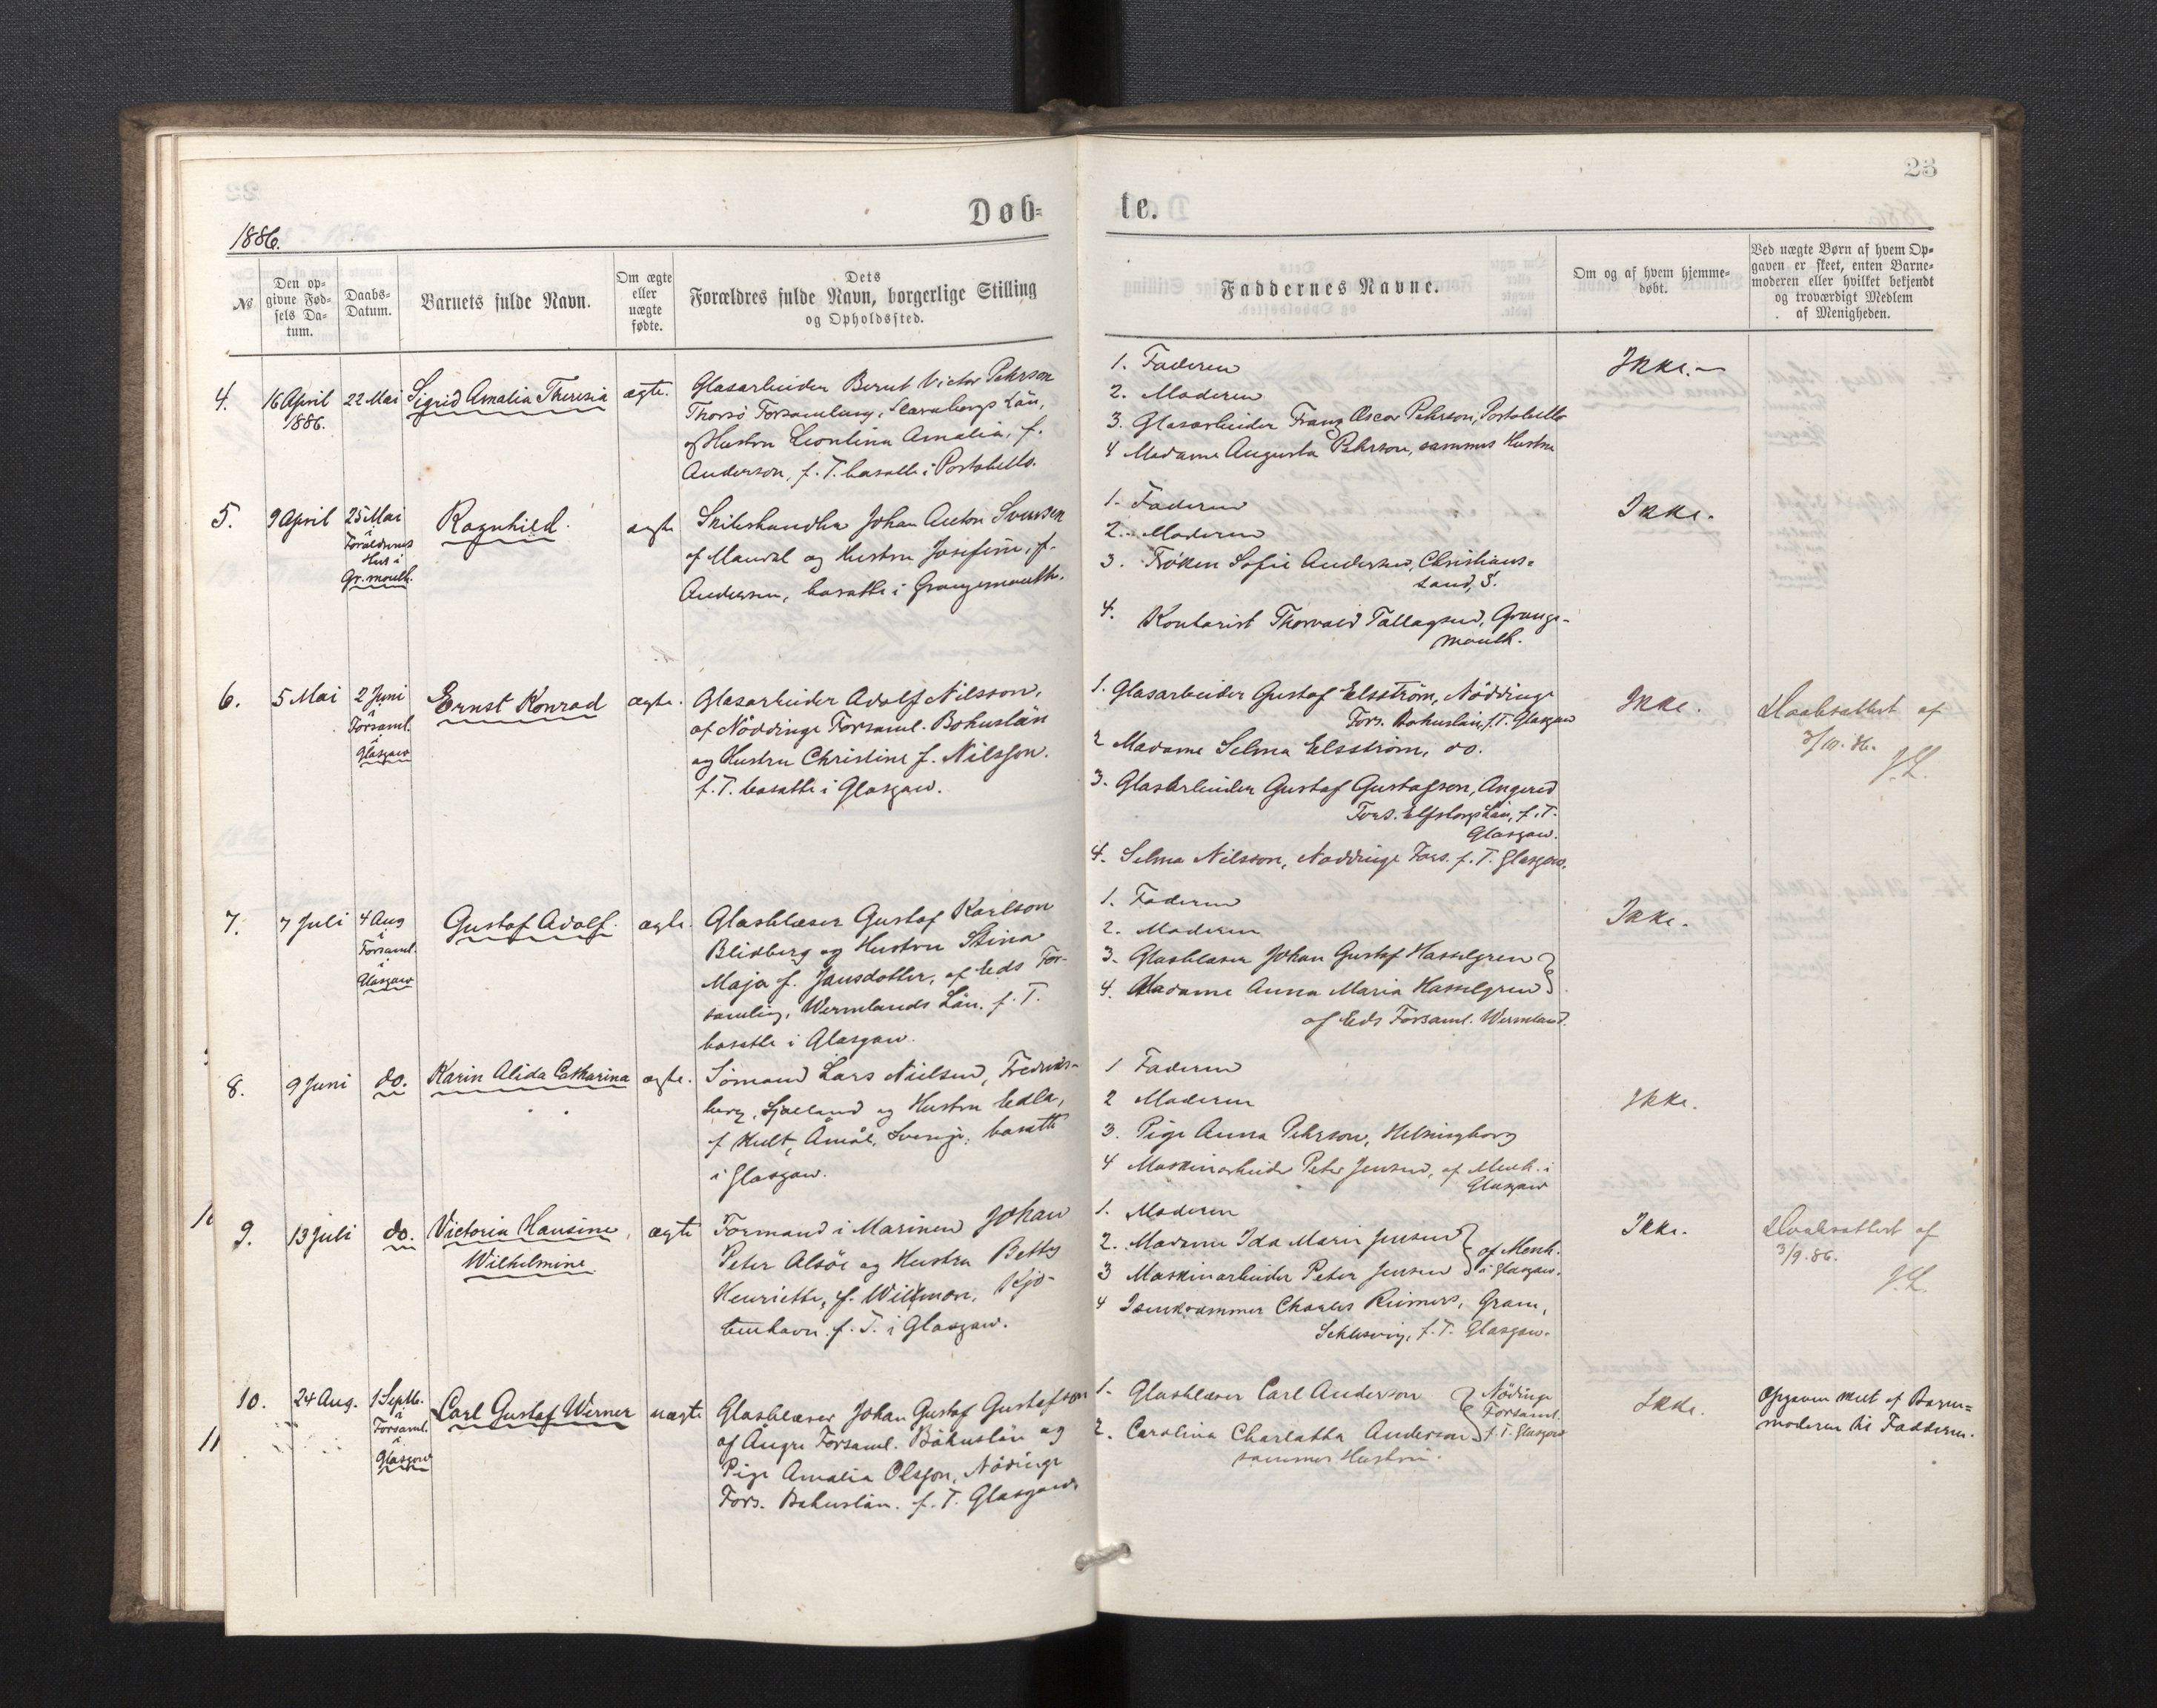 23
Døb-
te.
1886.
№
Den op-
givne Fød-
sels Da-
tum.
Daabs-
Datum.
Barnets fulde Navn.
Om ægte
eller
uægte
fødte.
Dets
Forældres fulde Navn, borgerlige Stilling
og Opholdssted.
Faddernes Navne.
Om og af hvem hjemme-
døbt.
Ved uægte Børn af hvem Op-
gaven er skeet, enten Barne-
moderen eller hvilket bekjendt
og troværdigt Medlem
af Menigheden.
4.
16 April
1886.
22 Mai
Sigrid Amalia Theresia
ægte.
Glasarbeider Bernt Victor Pehrson
Thorsö Forsamlung, Skaraborgs Län,
og Hustru Leontina Amalia, f.
Anderson, f. T. bosatte i Portobello.
1. Faderen
2. Moderen
3. Glasarbeider Franz Oscar Pehrson, Portobello
4 Madame Augusta Pehrson, sammes Hustru
Ikke.
5.
9 April
25 Mai
i
Forældrenes
Hus i
Gr.mouth.
Ragnhild.
ægte
Skibshandler Johan Anton Svensen
af Mandal og Hustru Josefine, f.
Andersen, bosatte i Grangemouth.
1. Faderen
2. Moderen
3. Frøken Sofie Andersen, Christians-
sand, S.
4. Kontorist Thorvald Tallagsen, Grange-
mouth.
Ikke.
6.
5 Mai
2 Juni
i
Forsaml.
i
Glasgow
Ernst Konrad
ægte.
Glasarbeider Adolf Nilsson,
af Nöddinge Forsaml. Bohuslän
og Hustru Christine f. Nilsson.
f. T. bosatte i Glasgow.
1. Glasarbeider Gustaf Elsström, Nöddinge
Fors. Bohuslän, f. T. Glasgow
2 Madame Selma Elsström, do.
3. Glasarbeider Gustaf Gustafson, Angered
Fors. Elfsborgs Län, f. T.
Glasgow.
4. Selma Nilsson, Nöddinge Fors. f. T. Glasgow.
Ikke.
Daabsattest af
3/10. 86.
7.
7 Juli
4 Aug
i
Forsaml.
i
Glasgow
Gustaf Adolf.
ægte.
Glasblæser Gustaf Karlson
Blidberg og Hustru Stina
Maja f. Jansdotter, af Eds For-
samling, Wermlands Län. f. T.
bosatte i Glasgow.
1. Faderen
2. Moderen
3. Glasblæser Johan Gustaf Hasselgren
4. Madame Anna Maria Hasselgren
af Eds Forsaml. Wermland.
Ikke.
8.
9 Juni
do.
Karin Alida Catharina
ægte.
Sömand Lars Nielsen, Fredriks-
berg, Sjælland og Hustru Edla,
f Hult, Åmål, Sverige, bosatte
i Glasgow.
1 Faderen
2 Moderen
3. Pige Anna Pehrson, Helsingborg
4 Maskinarbeider Peter Jensen, af Menh. i
Glasgow
Ikke.
9.
13 Juli
do.
Victoria Hansine
Wilhelmine
ægte
Formand i Marinen Johan
Peter Alsöe og Hustru Betty
Henriette, f. Willmon, Kjö-
benhavn. f. T. i Glasgow.
1. Moderen
2. Madame Ida Marie Jensen
3 Maskinarbeider Peter Jensen
af Menh.
i Glasgow.
4 Isenkrammer Charles Reimers, Gram,
Schlesvig, f. T. Glasgow.
Ikke.
Daabsattest af
3/9. 86.
10.
24 Aug.
1 Septb.
i
Forsaml.
i
Glasgow
Carl Gustaf Werner
uægte
Glasblæser Johan Gustaf Gustafson
af Forsaml. Bohuslän og
Pige Amalia Olsson, Nödinge
Fors. Bohuslän. f. T. Glasgow.
1. Glasblæser Carl Anderson
2. Carolina Charlotta Anderson
sammes Hustru.
Nödinge
Forsaml.
f. T. Glasgow
Ikke.
Opgaven skeet af Barne-
moderen til Fadderne.
11